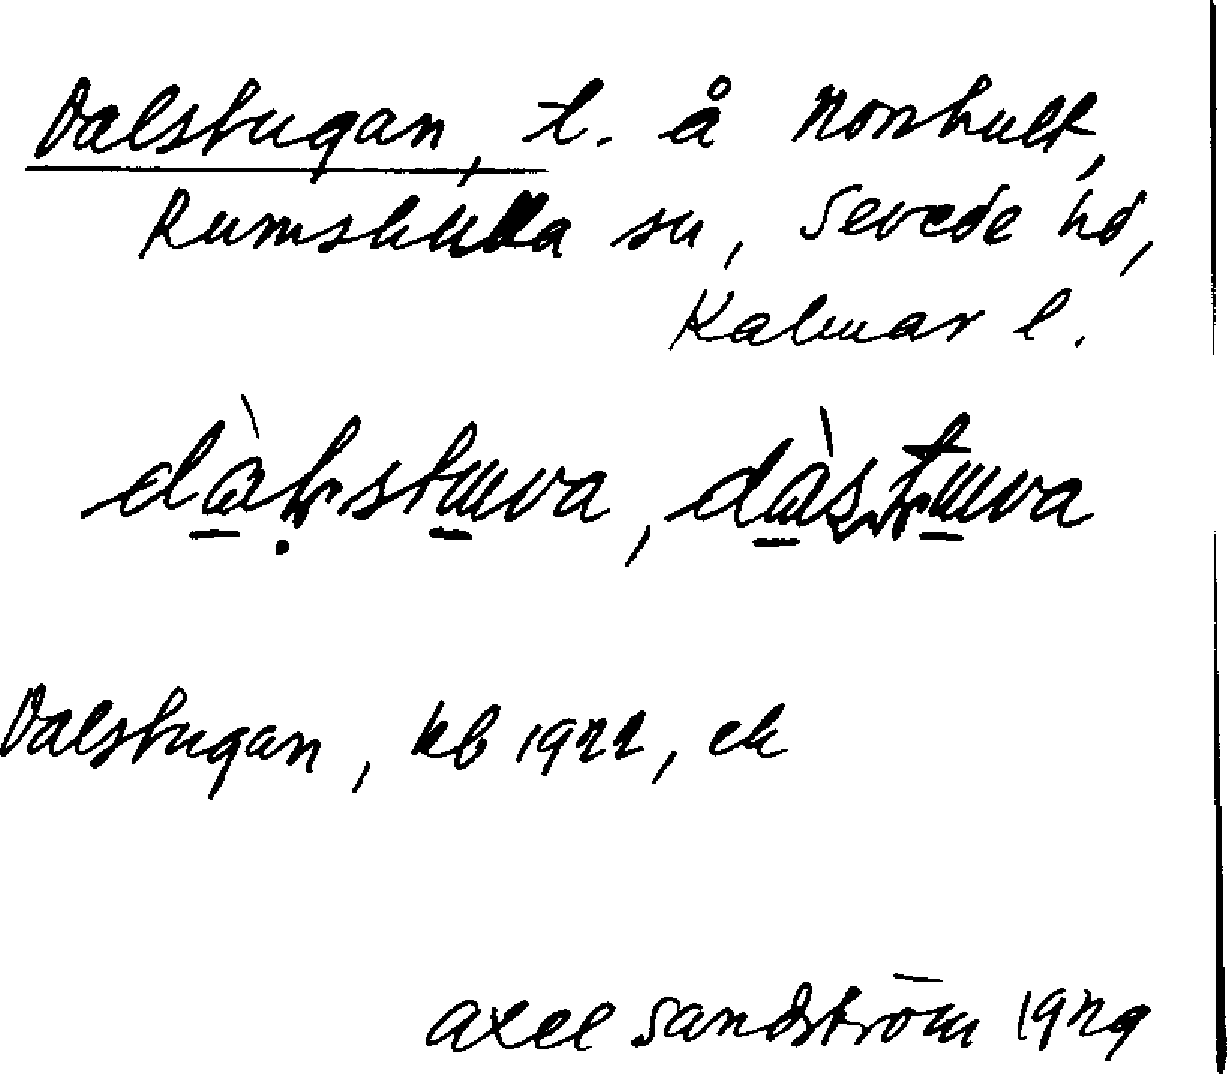 Dalstugan, t. å Norrhult,
Rumskulla sn, Sevede hd,
Kalmar l.
Dalstugan, kb 1922, ek
Axel Sandström 1929